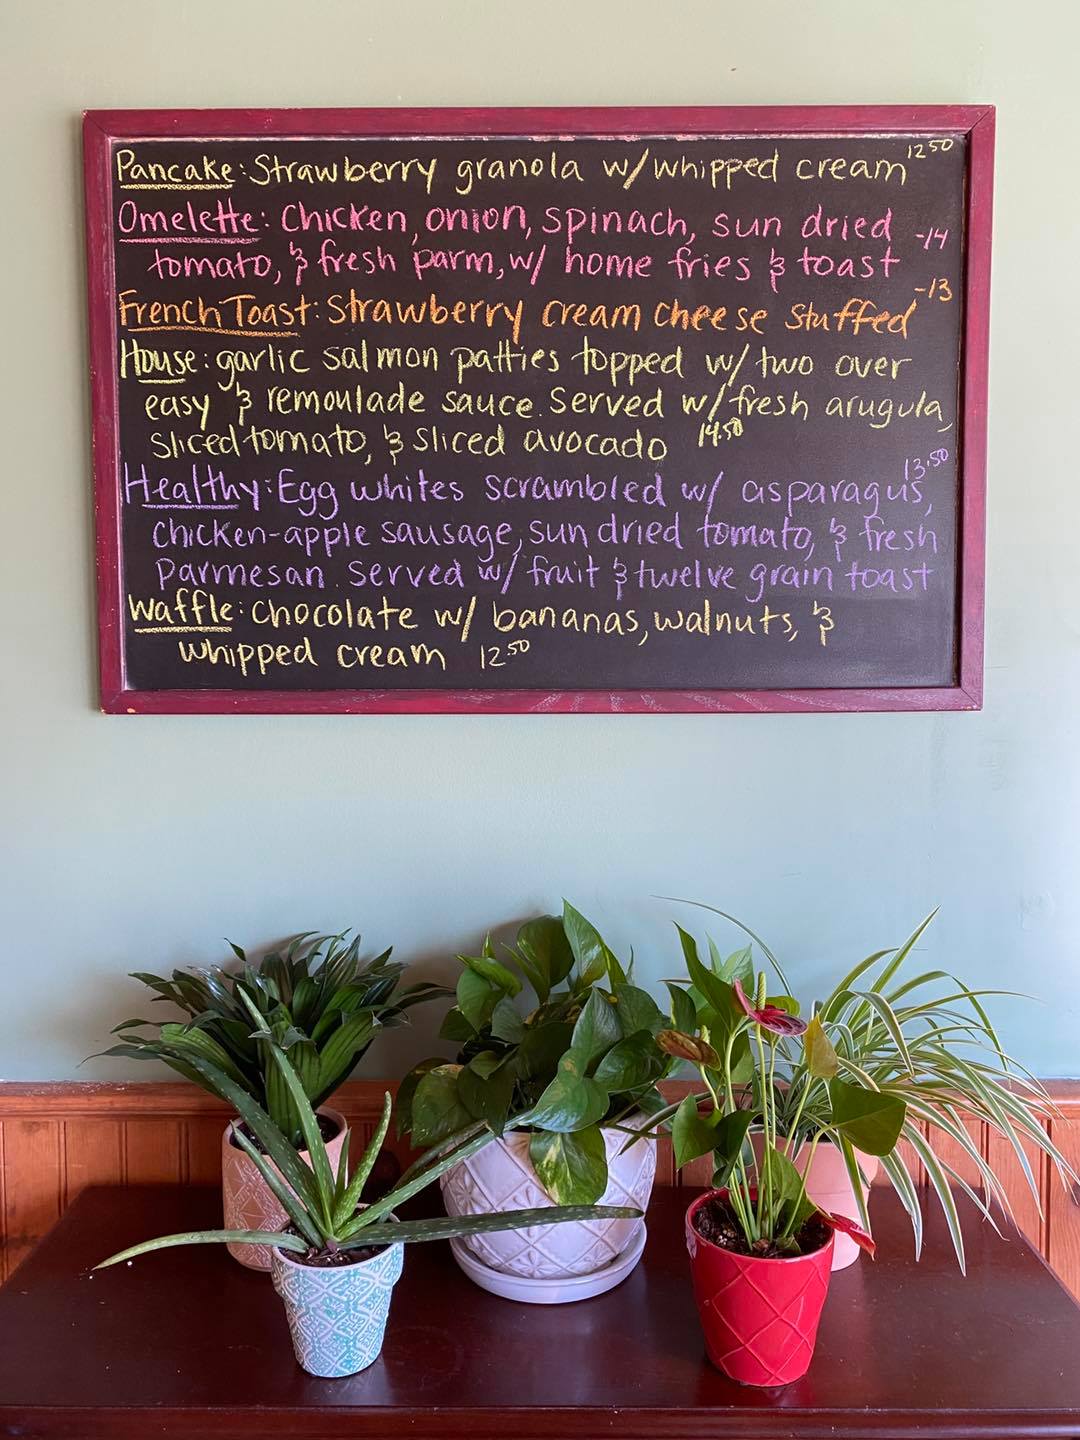 Pancake: Strawberry granola w/whipped cream 12.50
Omelette: Chicken, onion, spinach, sun dried -14
tomato, & fresh parm, w/ home fries & toast
French Toast: Strawberry cream cheese stuffed -13
House: garlic salmon patties topped w/ two over
easy & remoulade sauce. Served w/ fresh arugula,
sliced tomato, & sliced avocado 14.50
Healthy: Egg whites scrambled w/ asparagus, 13.50
chicken-apple sausage, sun dried tomato, & fresh
Parmesan. Served w/ fruit & twelve grain toast
Waffle: Chocolate w/ bananas, walnuts, &
whipped cream 12.50